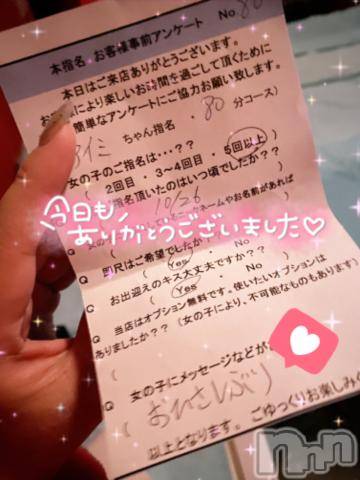 本指名 お客様事前アンケート No 80
本日はご来店ありがとうございます。
により楽しいお時間を過して頂くために
簡単なアンケートにご協力お願い致します。
ちゃん指名 ・ 80 分コース)
女の子のご指名は・・・??
( 2回目 ・ 3~4回目 ・ 5回以上 )
指名頂いたのはいつ頃でしたか??
( 10/26 )
ネームやお名前があれば
今日も、
ありがとうございました♡
Q 即尺はご希望でしたか
( Yes ・ No )
Q お出迎えのキス大丈夫ですか??
( Yes ・ No )
Q 当店はオプション無料です。使いたいオプションは
ありましたか?? (女の子により、不可能なものもあります)
(
Q 女の子にメッセージなどが
( おひさしぶり
以上となります。 ごゆっくりお楽しみく